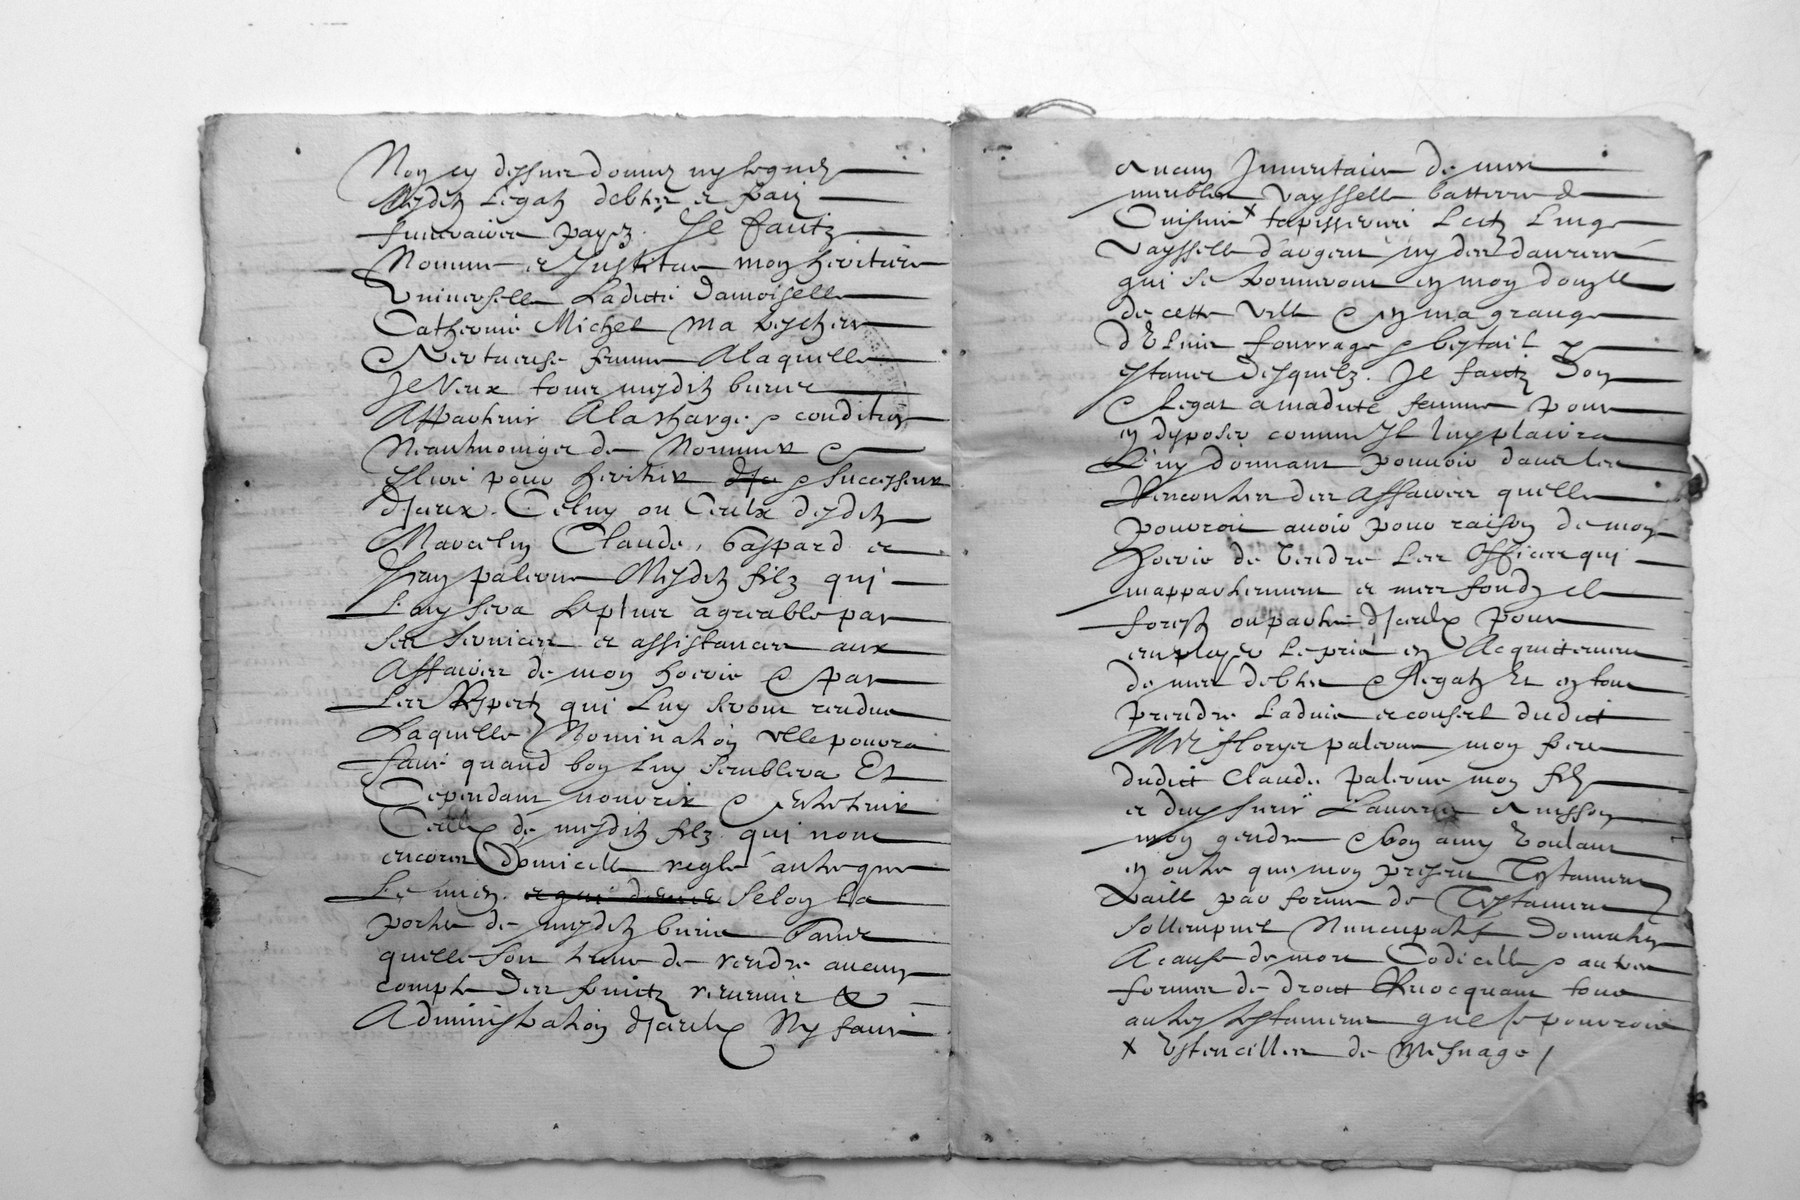 Non cy dessus donnez ny leguez
Mesditz legatz debtes et frais
funeraires payez. Je faitz
Nomme et Institue mon heritiere
Universelle Ladicte damoiselle
Catherine Michel ma tres chere
& Vertueuse femme A laquelle
Je Veux tous mesditz biens
Appartenir A la charge & condition
Neantmoinges de Nommer &
eslire pour heritier & successeur
d'jceux. Celuy ou Ceulx desditz
Marcelin Claude, Gaspard et
Jean palerne Mesditz filz qui
Luy sera Le plus agreable par
Ses services et assistances aux
Affaires de mon hoerie & par
Les Respectz qui Luy seront rendus
Laquelle Nomination elle pourra
faire quand bon Luy semblera Et
Cependant nourrir & Entretenir
Ceulx de mesditz filz qui nont
encores Domicille reglé autre que
Le mien. et qui Selon La
porte de mesditz biens Sans
quelle soit tenue de rendre aucun
compte Des fruictz revenus &
Administration d'jceulx Ny faire
Aucun Inventaire de mes
meubles Vayssselle batterie de
Cuisine x tapisseries Lictz Linge
Vaysselle d'argent ny des danrees
qui se trouveront en mon domicille
de cette Ville & en ma grange
fourrage & bestail y
estants Desquelz. Je faitz Don
& Legat a madicte femme pour
en disposer comme Il luy plaira
Luy donnant pouvoir dans les
Rencontres des Affaires quelle
pourroit avoir pour raison de mon
hoerie de Vendre Les Offices qui
m'appartiennent et mes fondz et
forestz ou partie d'jceulx pour
employer Le prix en Acquittement
de mes debtes & legatz Et en tout
prendre Ladvis et conseil dudict
palerne mon frere
dudict Claude palerne mon filz
et du sieur
mon gendre & bon amy Voulant
en outre que mon present Testament
Vaille par forme de Testament
Sollempnel Nuncupatif Donnation
A cause de mort Codicille & autres
formes de droict Revocquant tous
autres testaments que je pourrois
x Ustencilles de Mesnage /